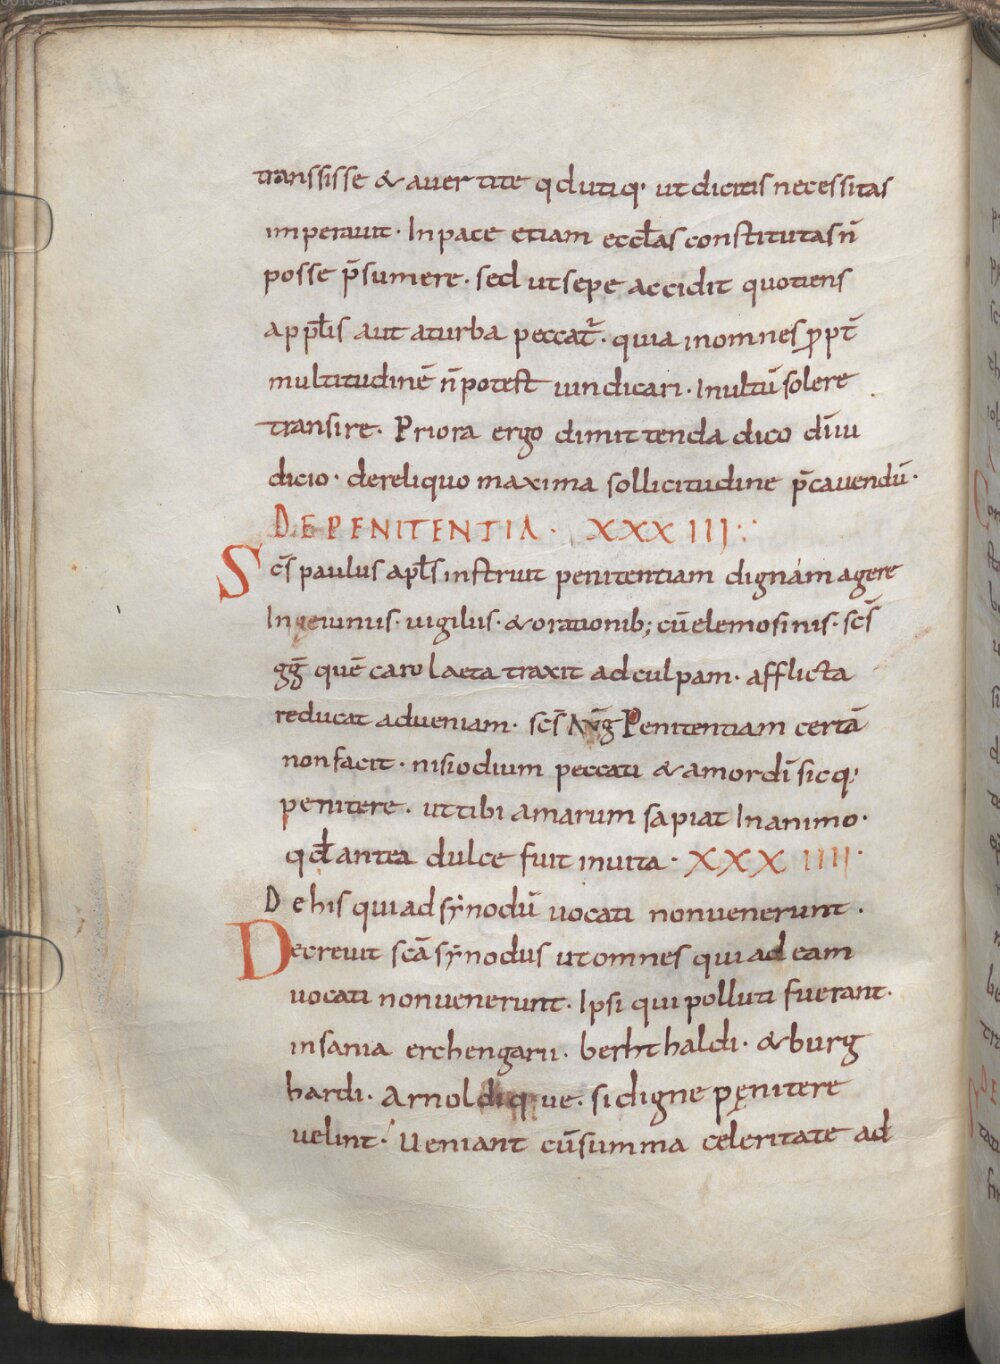 transsisse & auertite qd utiq; ut dicitis necessitas
imperauit · In pace etiam eccl̄as constitutas n̄
posse p̄sumere · sed ut sepe accidit quotiens
a pp̄lis aut a turba peccat̄ · quia in omnes ꝓpt̄
multitudinē n̄ potest uindicari · Inultū solere
transire · Priora ergo dimittenda dico dī iu
dicio · de reliquo maxima sollicitudine p̄cauendū ·
DE PENITENTIA · XXXIII ∴
Sc̄s paulus apl̄s instruit penitentiam dignam agere
In ieiuniis · uigiliis · & orationib; cū elemosinis · sc̄s
gḡ quē caro laeta traxit ad culpam · afflicta
reducat ad ueniam · sc̄s Aūg Penitentiam certā
non facit · nisi odium peccati & amor dī sic q;
penitere · ut tibi amarum sapiat In animo ·
qđ antea dulce fuit in uita · XXXIIII ·
De his qui ad synodū uocati non uenerunt ·
Decreuit sc̄a synodus ut omnes qui ad eam
uocati non uenerunt · Ipsi qui polluti fuerant ·
insania erchengarii · berhthaldi · & burg
hardi · Arnoldiq; ue · si digne pęnitere
uelint · Ueniant cū summa celeritate ad